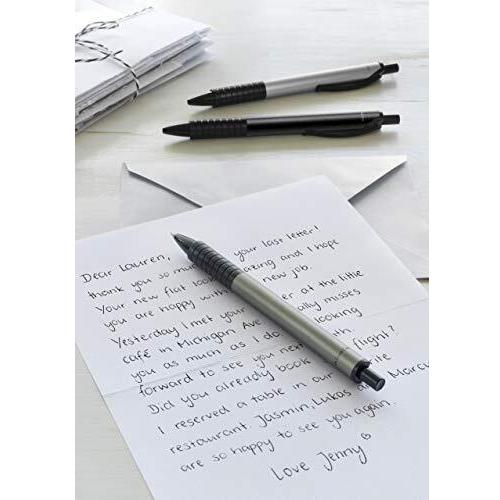 Dear Lauren,
thank you so mu your last letter!
Your new flat loo azing and I hope
you are happy with new job.
Yesterday I met your er at the little
café in Michigan Ave ally misses
you as much as I do. looking
forward to see you nex th.
Did you already book flight?
I reserved a table in our ite
restaurant. Jasmin, Lukas a Marcu
are so happy to see you again.
Love Jenny